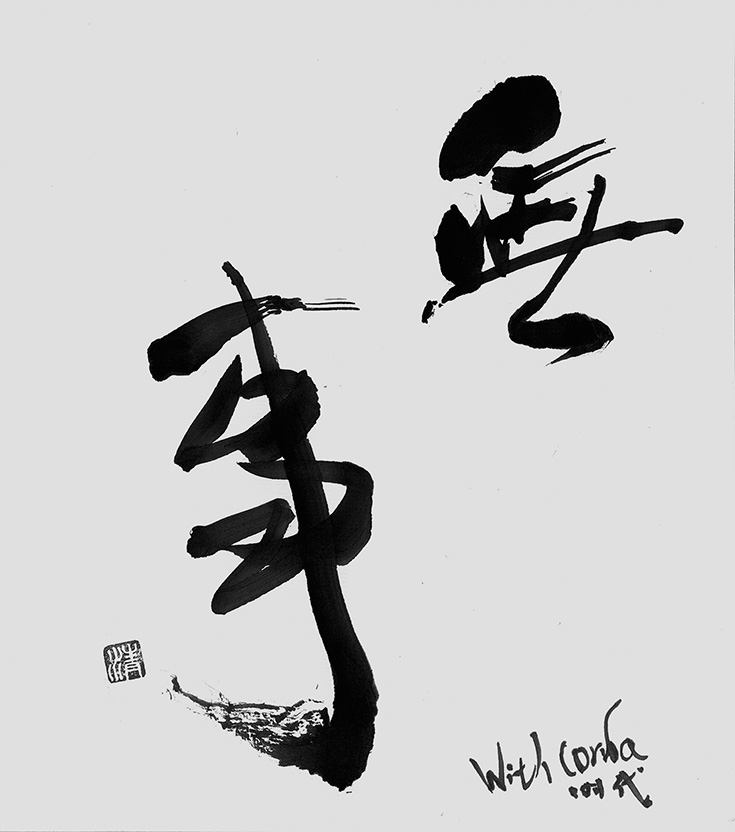 無事
清
With corona
時代